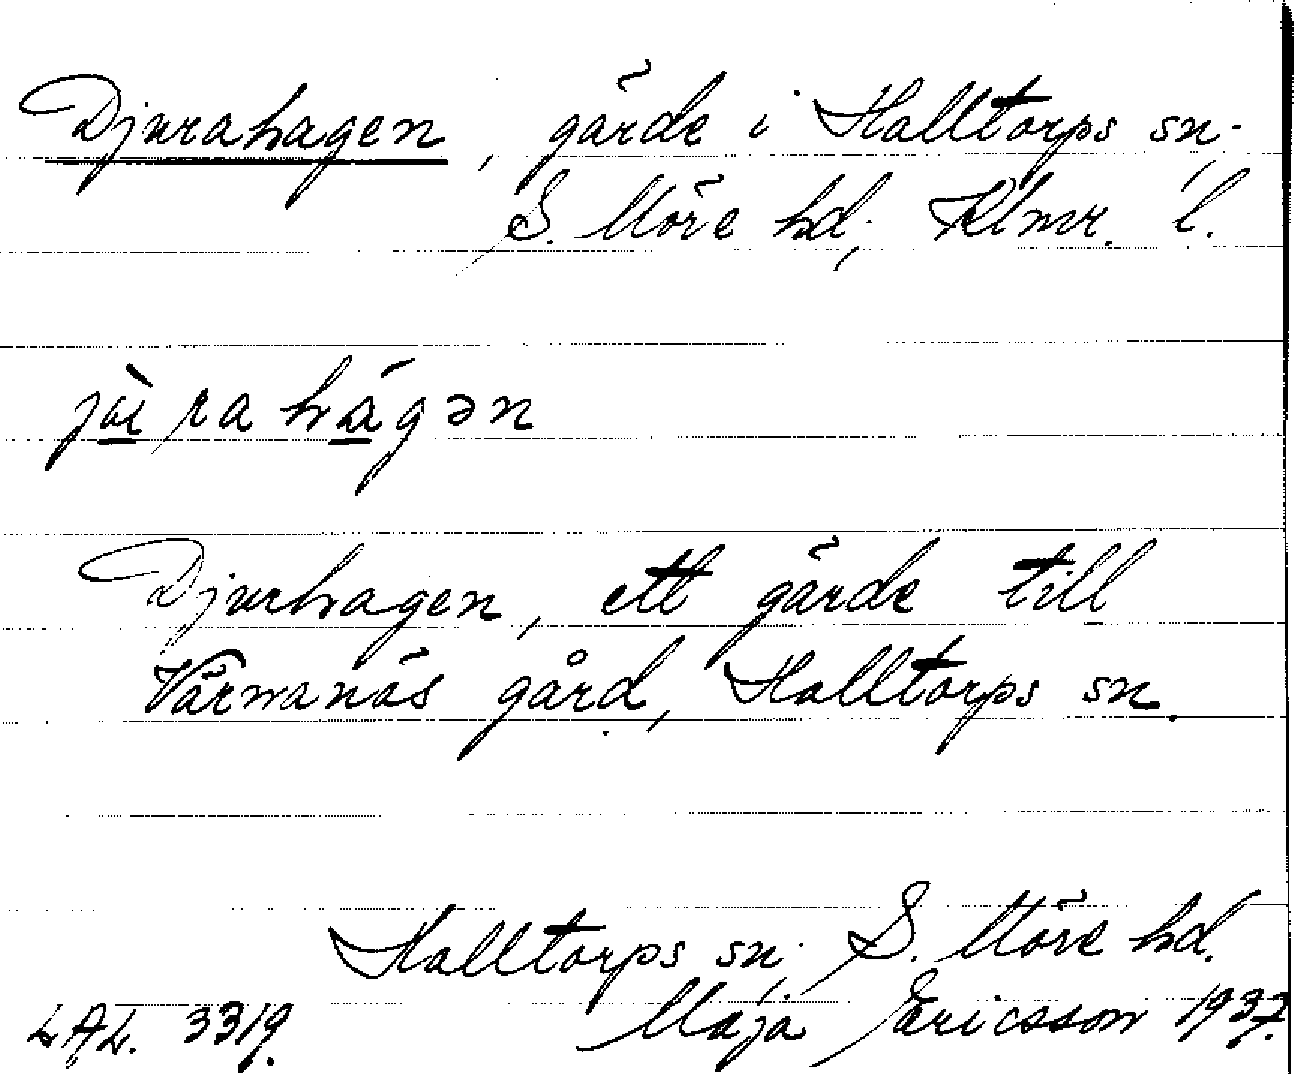 Djurahagen, gärde i Halltorps sn.,
S. Möre hd., Klmr. l.
Djurhagen, ett gärde till
Värnanäs gård, Halltorps sn.
Halltorps sn., S. Möre hd.
LAL. 3319. Maja Ericsson 1937.